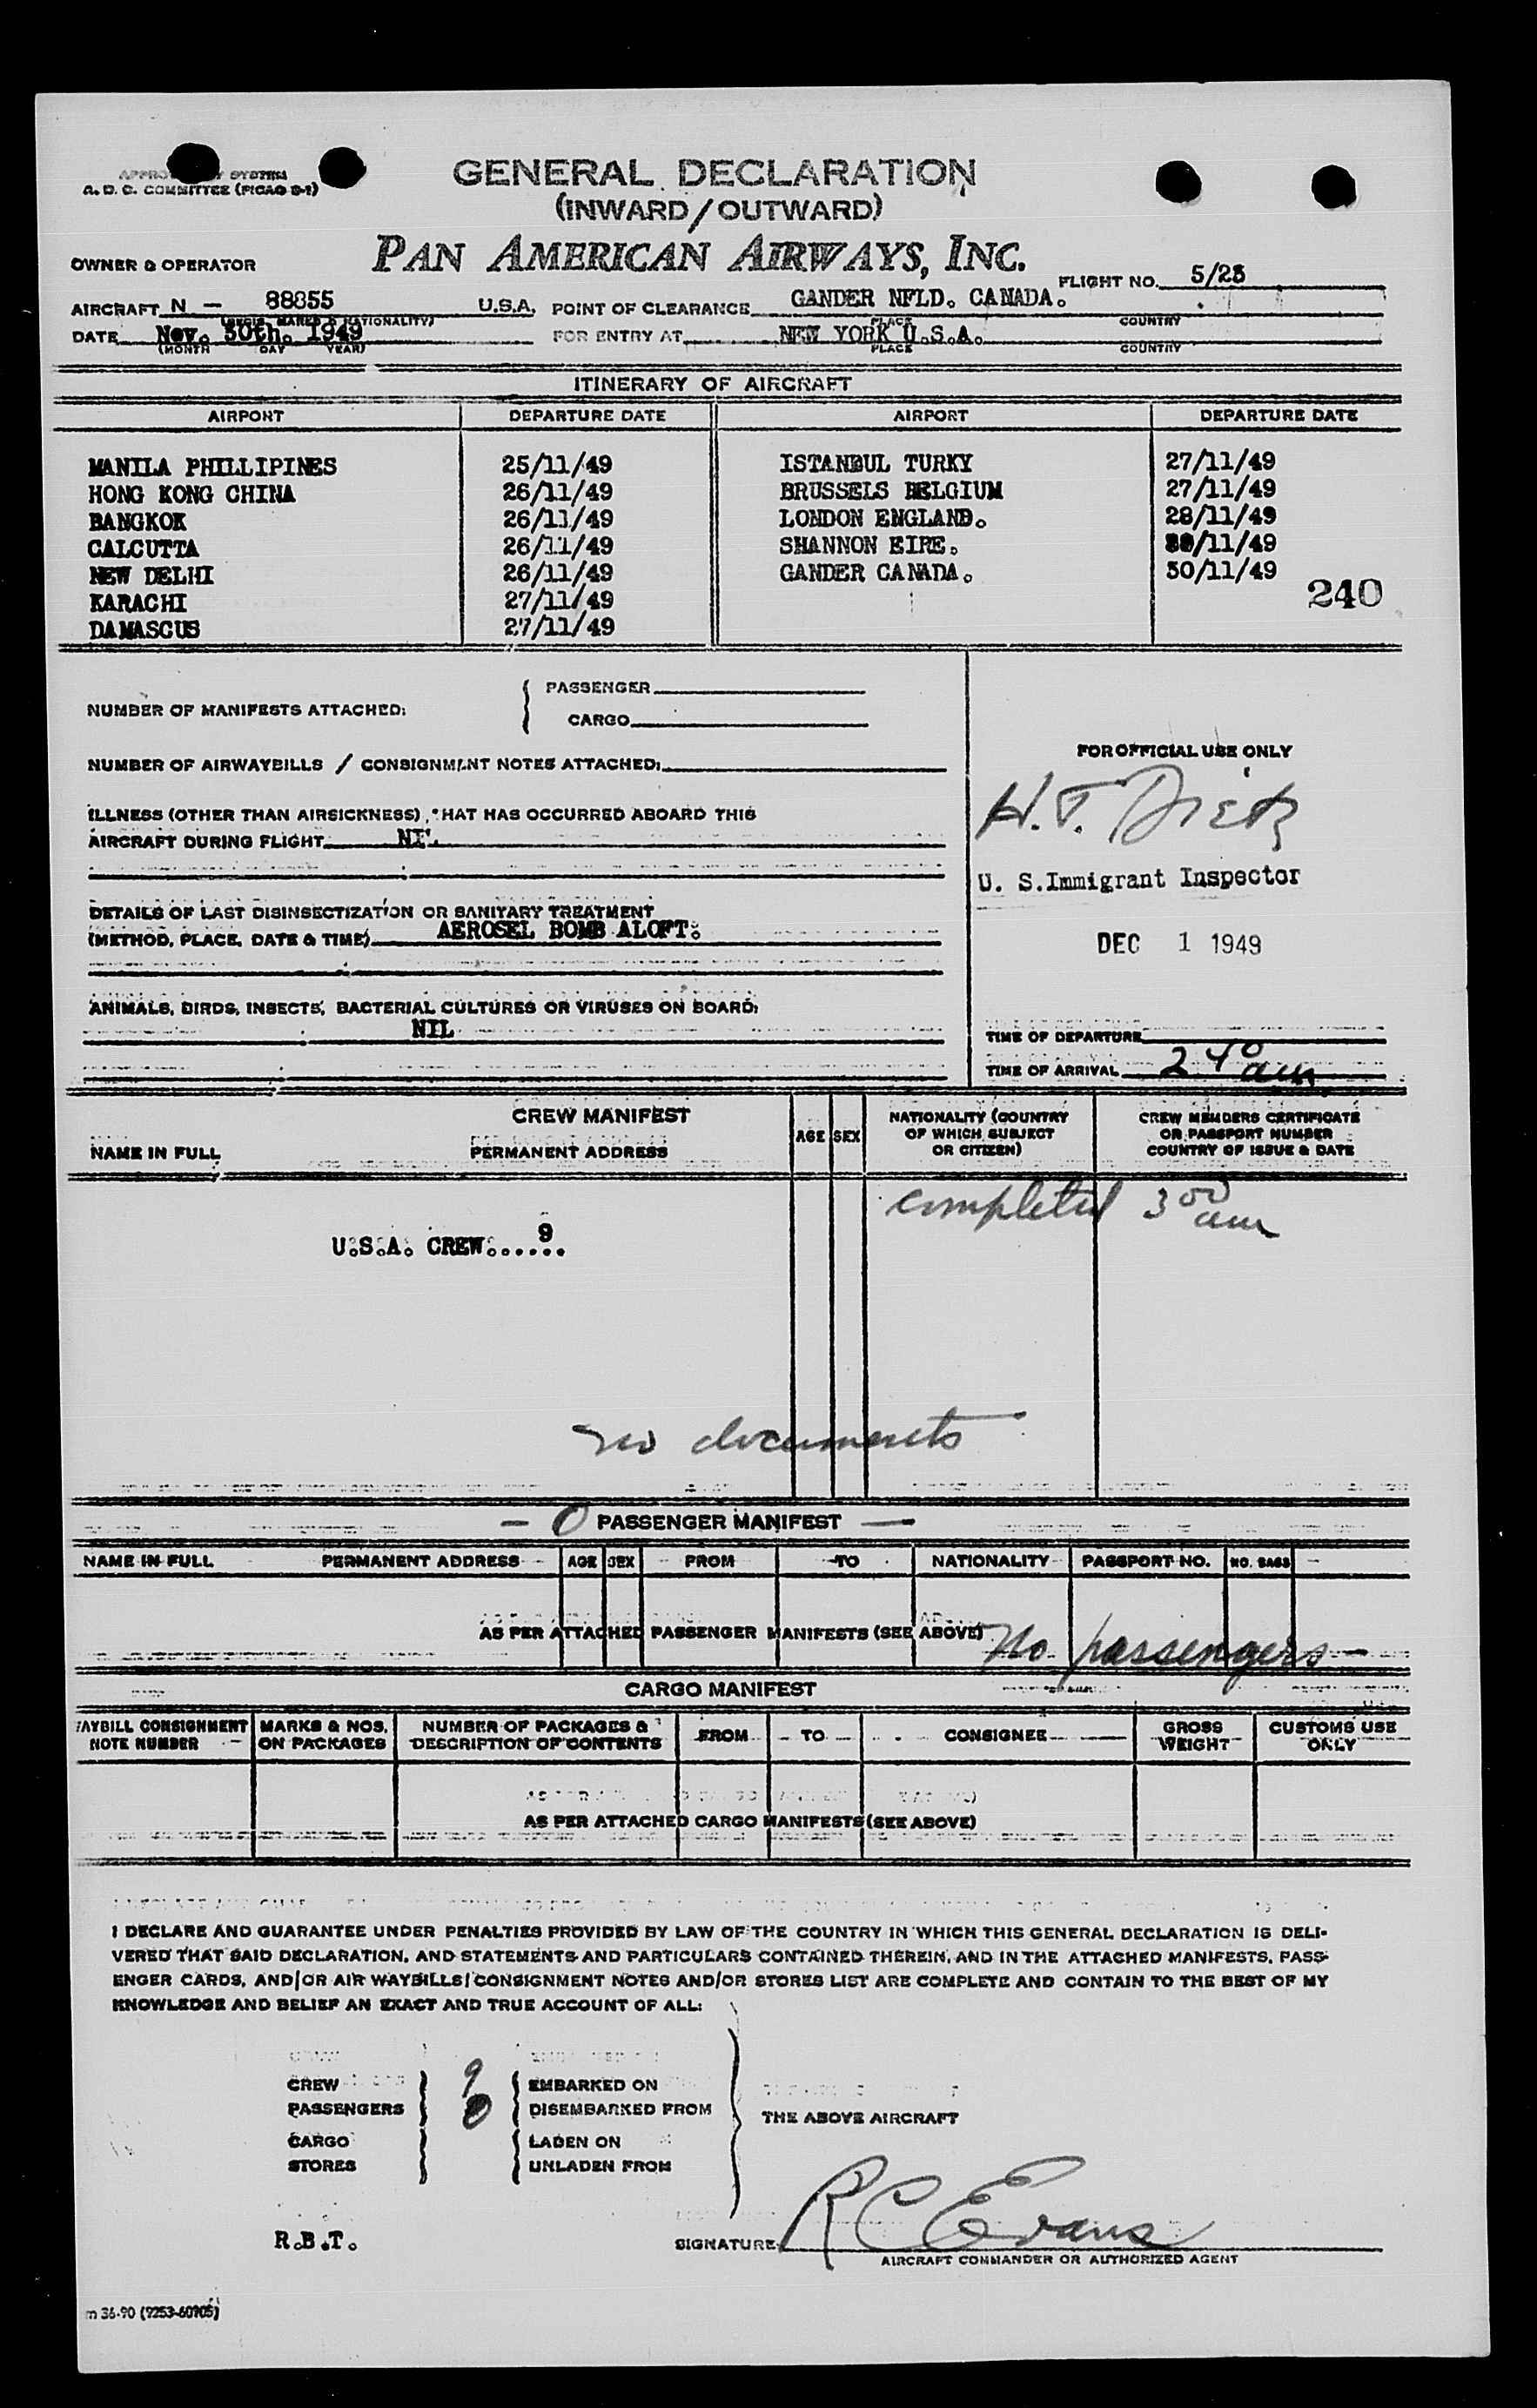 GENERAL DECLARATION
(INWARD/OUTWARD)
A. D. C. COMMITTEE (PICAO S-1)
OWNER & OPERATOR PAN AMERICAN AIRWAYS, INC. FLIGHT NO. 5/25
AIRCRAFT N - 88855 U.S.A. POINT OF CLEARANCE GANDER NFLD. CANADA.
(REGIS. MARKS & NATIONALITY) PLACE COUNTRY
DATE Nov. 30th. 1949 FOR ENTRY AT NEW YORK U.S.A.
(MONTH DAY YEAR) PLACE COUNTRY
ITINERARY OF AIRCRAFT
AIRPORT DEPARTURE DATE AIRPORT DEPARTURE DATE
MANILA PHILLIPINES 25/11/49 ISTANBUL TURKY 27/11/49
HONG KONG CHINA 26/11/49 BRUSSELS BELGIUM 27/11/49
BANGKOK 26/11/49 LONDON ENGLAND. 28/11/49
CALCUTTA 26/11/49 SHANNON EIRE. 30/11/49
NEW DELHI 26/11/49 GANDER CANADA. 30/11/49
KARACHI 27/11/49 240
DAMASCUS 27/11/49
NUMBER OF MANIFESTS ATTACHED:
PASSENGER
CARGO
NUMBER OF AIRWAYBILLS / CONSIGNMENT NOTES ATTACHED:
ILLNESS (OTHER THAN AIRSICKNESS), THAT HAS OCCURRED ABOARD THIS
AIRCRAFT DURING FLIGHT NIL
DETAILS OF LAST DISINSECTIZATION OR SANITARY TREATMENT
(METHOD, PLACE, DATE & TIME) AEROSEL BOMB ALOFT.
ANIMALS, BIRDS, INSECTS, BACTERIAL CULTURES OR VIRUSES ON BOARD:
NIL
FOR OFFICIAL USE ONLY
H.T. Dietz
U. S.Immigrant Inspector
DEC 1 1949
TIME OF DEPARTURE
TIME OF ARRIVAL 2 40 am
CREW MANIFEST
NAME IN FULL PERMANENT ADDRESS AGE SEX NATIONALITY (COUNTRY OF WHICH SUBJECT OR CITIZEN) CREW MEMBERS CERTIFICATE OR PASSPORT NUMBER COUNTRY OF ISSUE & DATE
completed 3 00 am
U.S.A. CREW......9
no documents
- 0 PASSENGER MANIFEST -
NAME IN FULL PERMANENT ADDRESS AGE SEX FROM TO NATIONALITY PASSPORT NO. NO. BAGS
AS PER ATTACHED PASSENGER MANIFESTS (SEE ABOVE) No passengers -
CARGO MANIFEST
AYBILL CONSIGNMENT NOTE NUMBER MARKS & NOS. ON PACKAGES NUMBER OF PACKAGES & DESCRIPTION OF CONTENTS FROM TO CONSIGNEE GROSS WEIGHT CUSTOMS USE ONLY
AS PER ATTACHED CARGO MANIFESTS (SEE ABOVE)
I DECLARE AND GUARANTEE UNDER PENALTIES PROVIDED BY LAW OF THE COUNTRY IN WHICH THIS GENERAL DECLARATION IS DELI-
VERED THAT SAID DECLARATION, AND STATEMENTS AND PARTICULARS CONTAINED THEREIN, AND IN THE ATTACHED MANIFESTS, PASS-
ENGER CARDS, AND/OR AIR WAYBILLS/CONSIGNMENT NOTES AND/OR STORES LIST ARE COMPLETE AND CONTAIN TO THE BEST OF MY
KNOWLEDGE AND BELIEF AN EXACT AND TRUE ACCOUNT OF ALL:
CREW 9 EMBARKED ON
PASSENGERS 0 DISEMBARKED FROM
THE ABOVE AIRCRAFT
CARGO LADEN ON
STORES UNLADEN FROM
R.B.T.
SIGNATURE R C Evans
AIRCRAFT COMMANDER OR AUTHORIZED AGENT
m 36-90 (9253-60905)